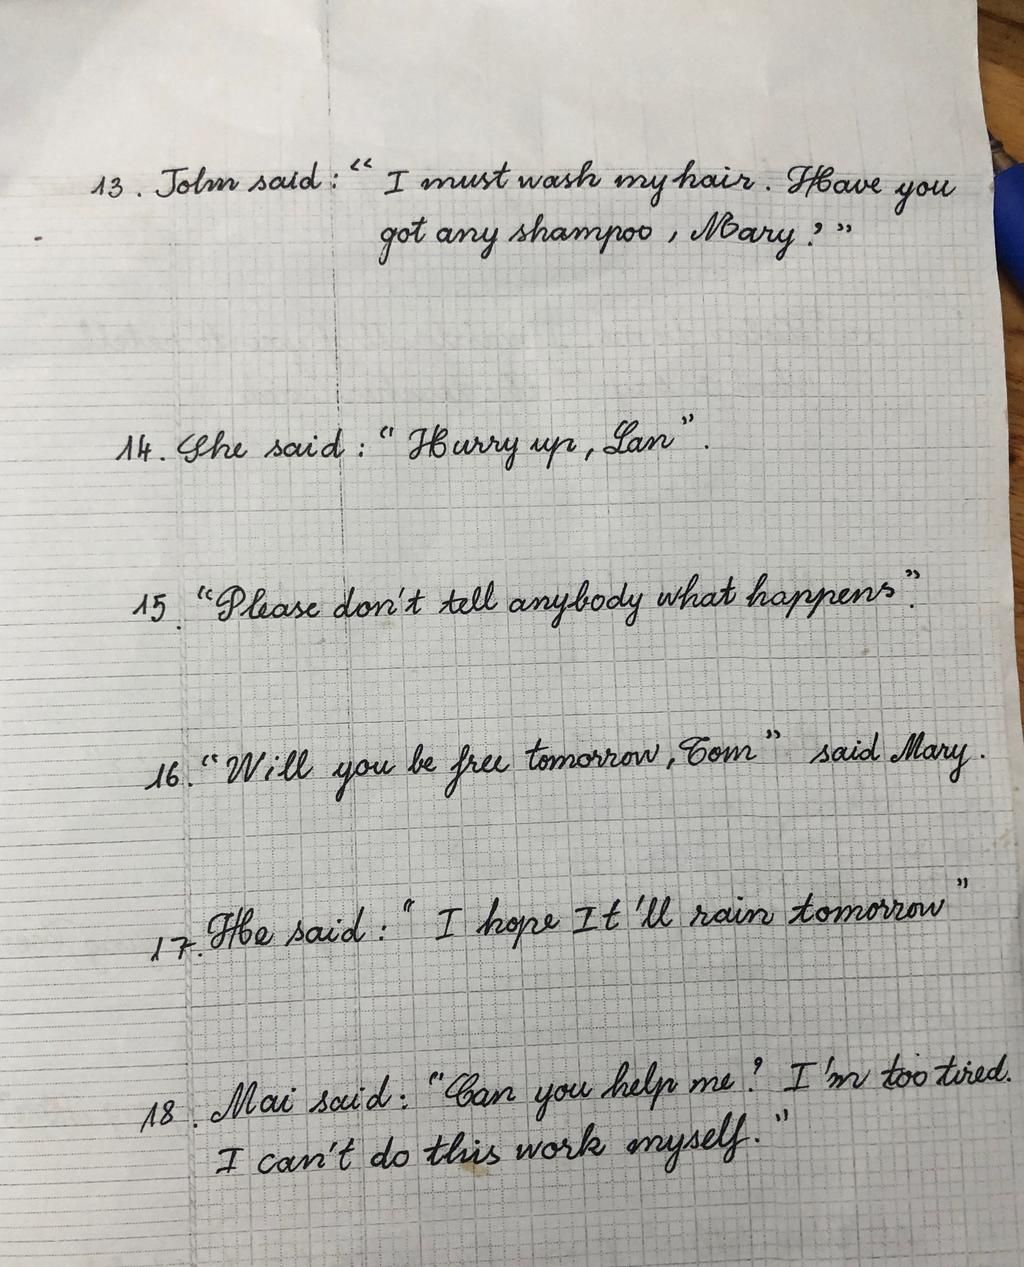 13. John said: “ I must wash my hair. Have you
got any shampoo, Mary? ”
14. She said: “ Hurry up, Lan ”.
15. “Please don't tell anybody what happens”.
16. “Will you be free tomorrow, Tom” said Mary.
17. He said: “ I hope It'll rain tomorrow”
18. Mai said: “Can you help me? I'm too tired.
I can't do this work myself.”